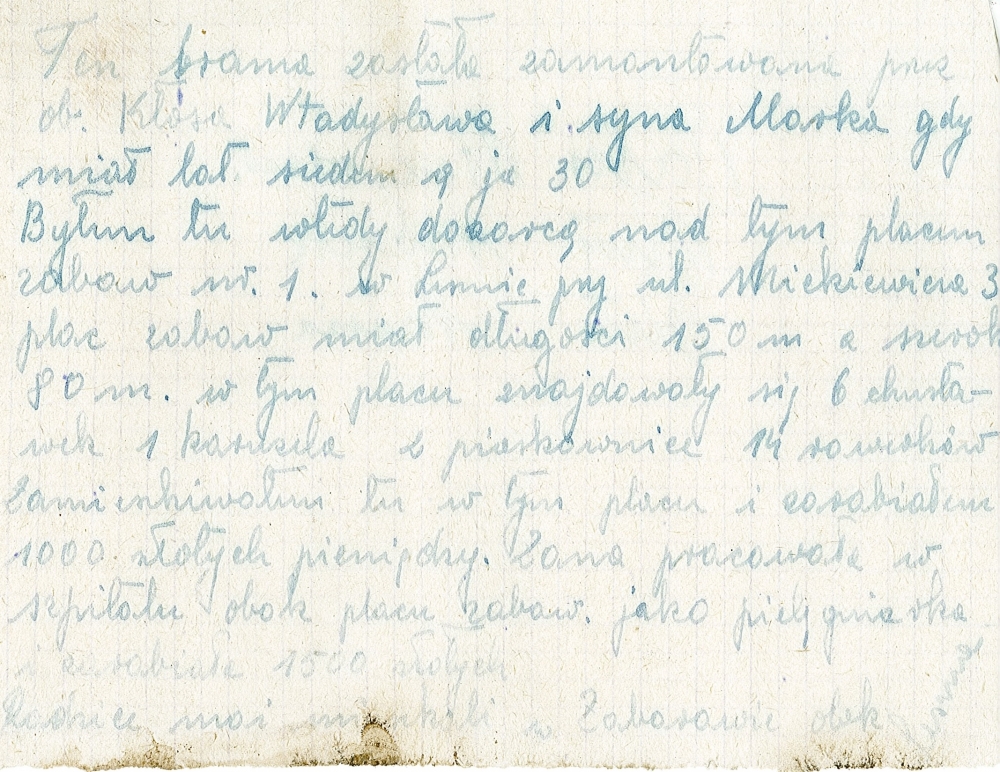 Ten brama została zamontowana przz
ob. Kłosa Władysława i syna Marka gdy
miał lat siedem a ja 30
Byłem tu wtedy dozorcą nad tym placem
zabaw nr. 1. w Lesnie przy ul. Mickiewicza 3
plac zabaw miał długości 150 m a szerok
80 m. w tym placu znajdowały się 6 chusta-
wek 1 karuzela 2 piaskownice 14 rowerków
Zamieszkiwałem tu w tym placu i zarabiałem
1000. złotych pieniędzy. Żona pracowała w
szpitalu obok placu zabaw. jako pielęgniarka
i zarabiała 1500 złotych
Rodzice moi mieszkali w Zaborowie obok